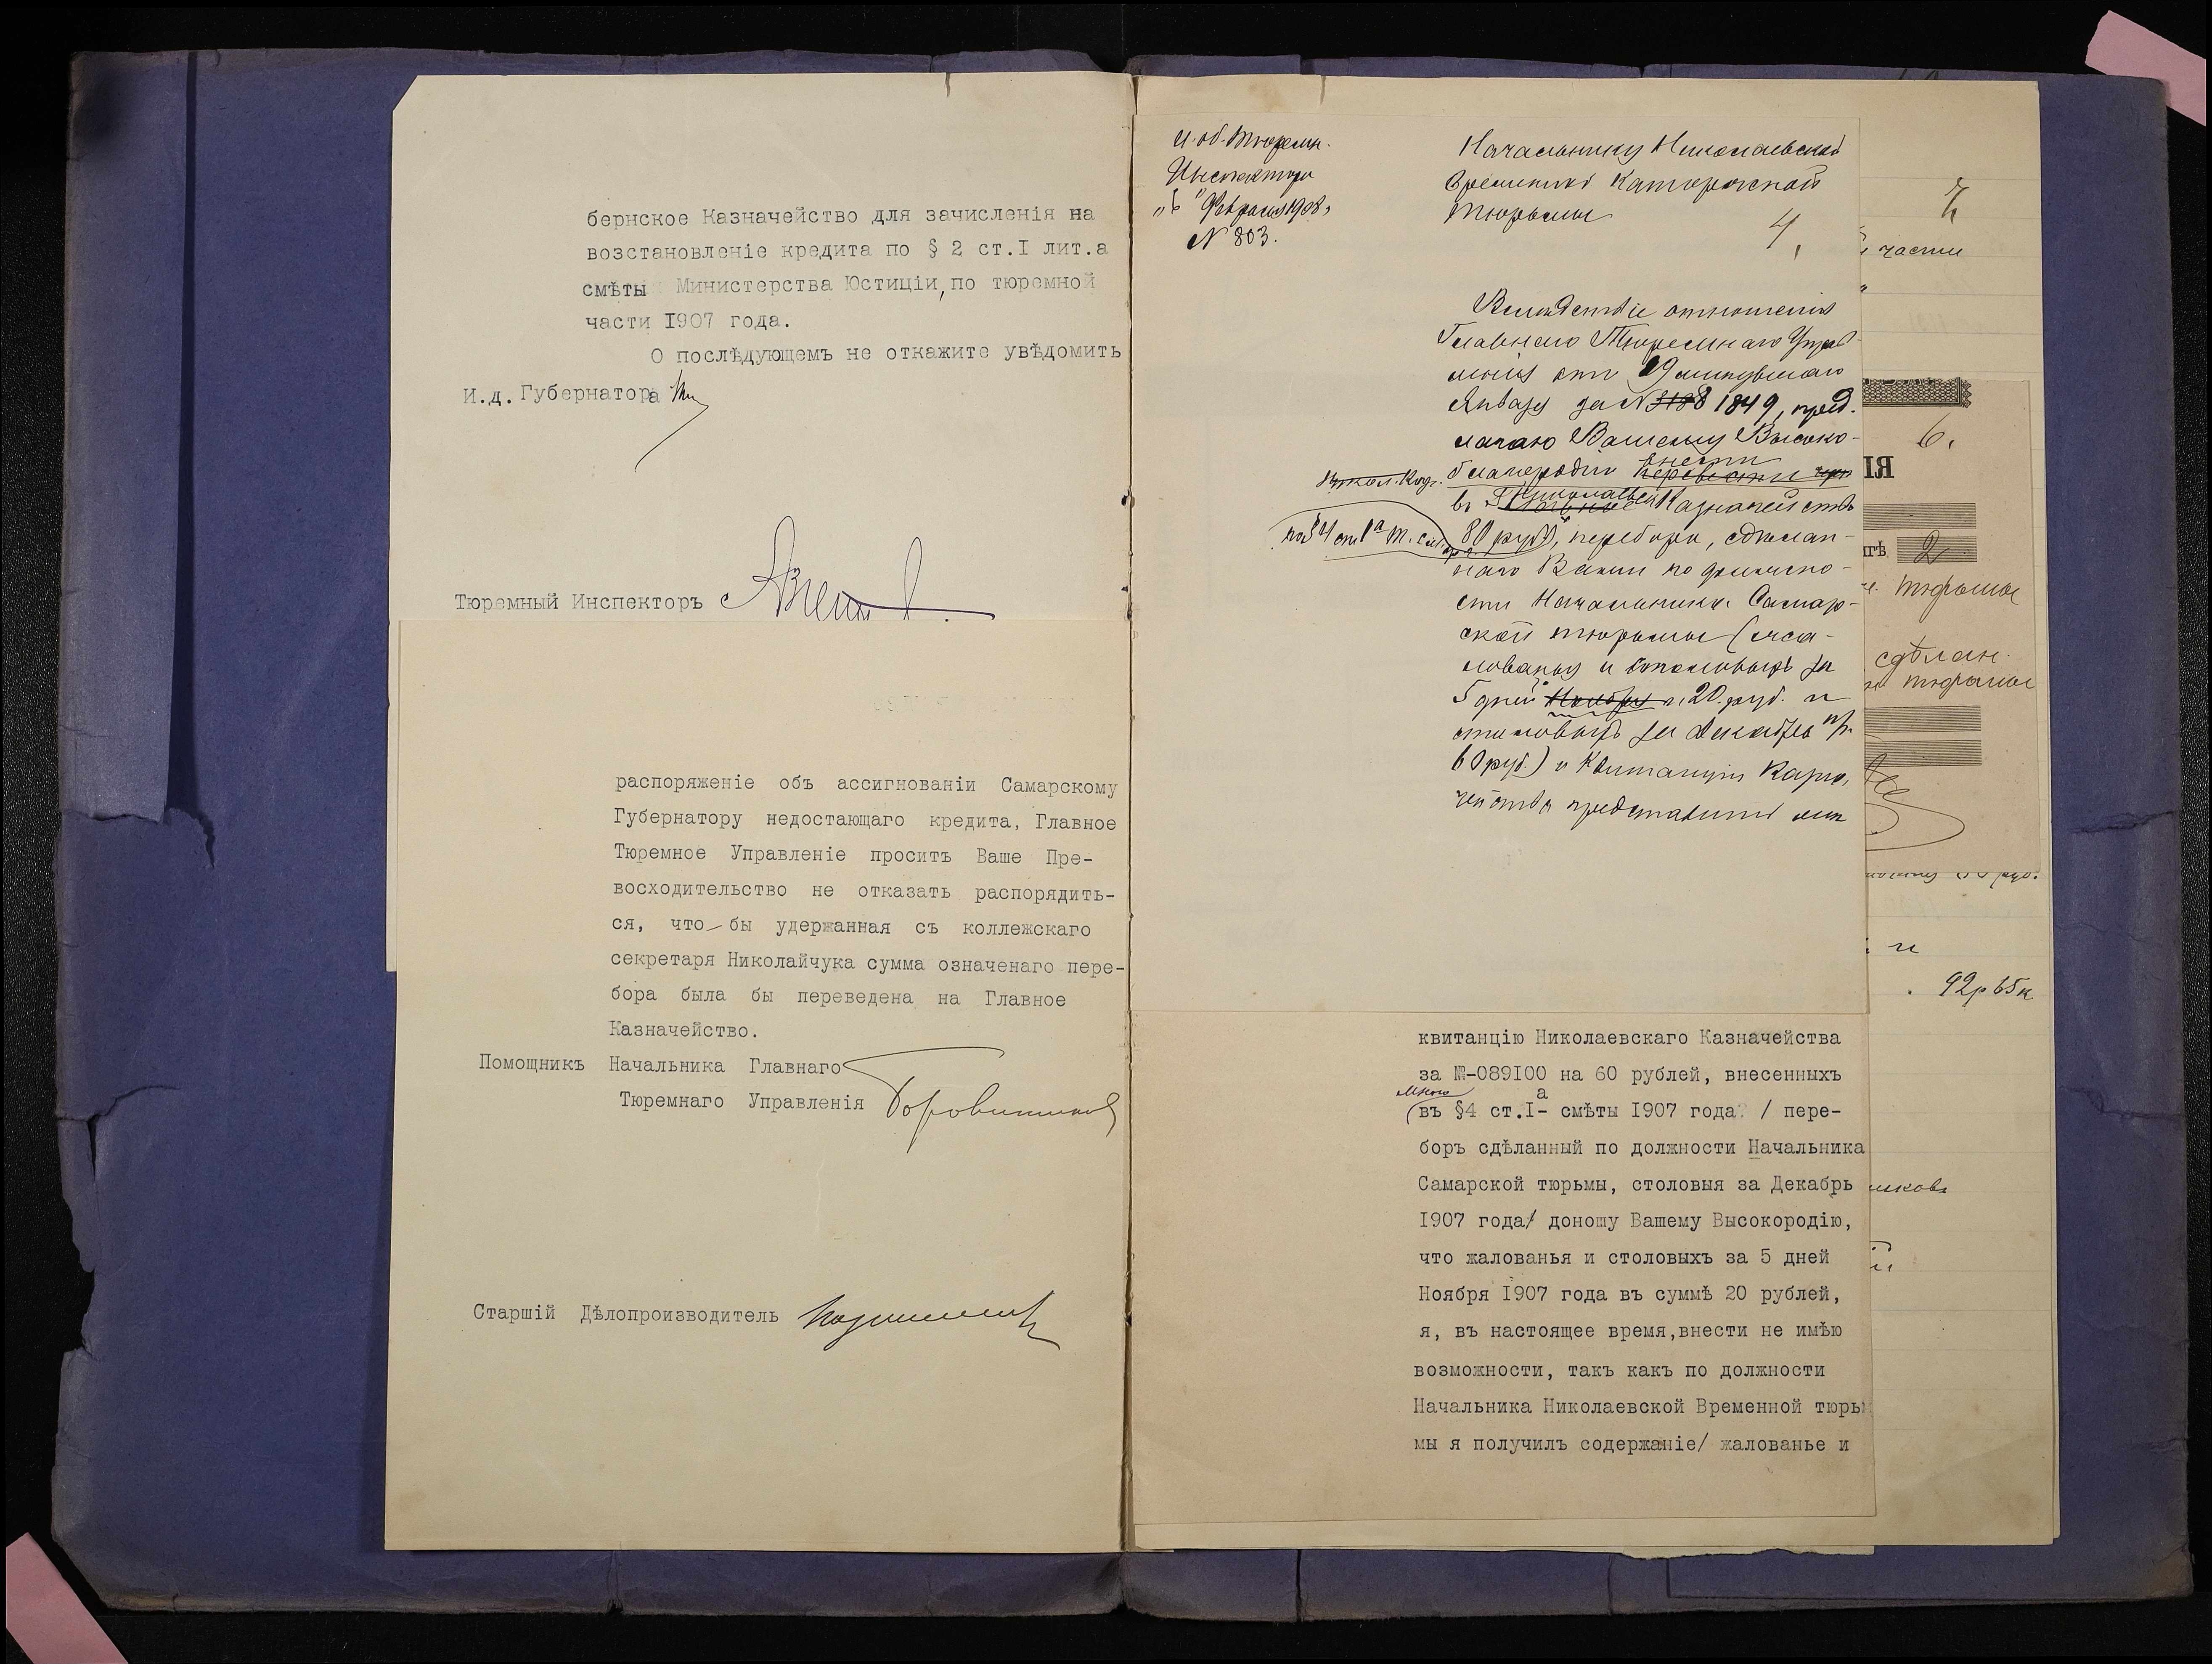 бернское Казначейство для зачисленія на
возстановленіе кредита по § 2 ст.I лит.а
смѣты Министерства Юстиціи, по тюремной
части I907 года.
О послѣдующемъ не откажите увѣдомить
И.д. Губернатора
Тюремный Инспекторъ
распоряженіе объ ассигнованіи Самарскому
Губернатору недостающаго кредита, Главное
Тюремное Управленіе проситъ Ваше Пре-
восходительство не отказать распорядить-
ся, что-бы удержанная съ коллежскаго
секретаря Николайчука сумма означенаго пере-
бора была бы переведена на Главное
Казначейство.
Помощникъ Начальника Главнаго
Тюремнаго Управленія Боровитинов
Старшій Дѣлопроизводитель
И. об. Тюремн.
Инспектора
"6" Февраля 1908 г.
№ 803.
Начальнику Николаевской
временной Каторжной
тюрьмы
4.
Вслѣдствіе отношенія
Главнаго Тюремнаго Управ-
ленія отъ 29 минувшаго
Января за № 3188 1849, пред-
лагаю Вашему Высоко-
благородію внести перевести
въ Николаевск. Казначейство
по § 4 ст. 1 а т. см.
80 руб., перебора, сдѣлан-
наго Вами по должно-
сти Начальника Самар-
ской тюрьмы (жа-
лованья и столовыхъ за
5 дней Ноября 20 руб. и
столовыхъ за Декабрь
60 руб.) и квитанцію Казна-
чейства представить мнѣ
квитанцію Николаевскаго Казначейства
за №-089I00 на 60 рублей, внесенныхъ
мною
въ §4 ст.I-а смѣты I907 года / пере-
боръ сдѣланный по должности Начальника
Самарской тюрьмы, столовыя за Декабрь
I907 года/ доношу Вашему Высокородію,
что жалованья и столовыхъ за 5 дней
Ноября I907 года въ суммѣ 20 рублей,
я, въ настоящее время,внести не имѣю
возможности, такъ какъ по должности
Начальника Николаевской Временной тюрь-
мы я получилъ содержаніе/ жалованье и
части
6.
ІЯ
2
тюрьмы
сдѣлан.
тюрьмы
и
92р 65к